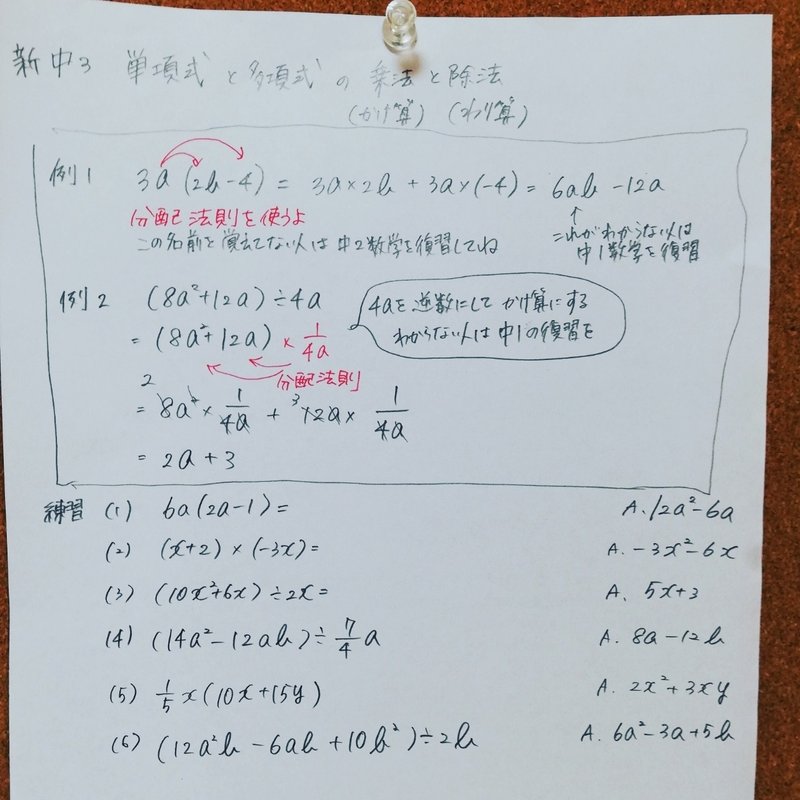 新中3 単項式と多項式の乗法と除法
(かけ算) (わり算)
例1 3a(2b-4) = 3a×2b + 3a×(-4) = 6ab - 12a
分配法則を使うよ
この名前を覚えてない人は中2数学を復習してね
↑
これがわからない人は
中1数学を復習
例2 (8a²+12a)÷4a
= (8a²+12a) × 1/4a
4aを逆数にしてかけ算にする
わからない人は中1の復習を
分配法則
= 8a² × 1/4a + 12a × 1/4a
2 3
= 2a + 3
練習 (1) 6a(2a-1)= A. 12a²-6a
(2) (x+2)×(-3x)= A. -3x²-6x
(3) (10x²+6x)÷2x= A. 5x+3
(4) (14a²-12ab)÷7/4a A. 8a-12b
(5) 1/5x(10x+15y) A. 2x²+3xy
(6) (12a²b-6ab+10b²)÷2b A. 6a²-3a+5b